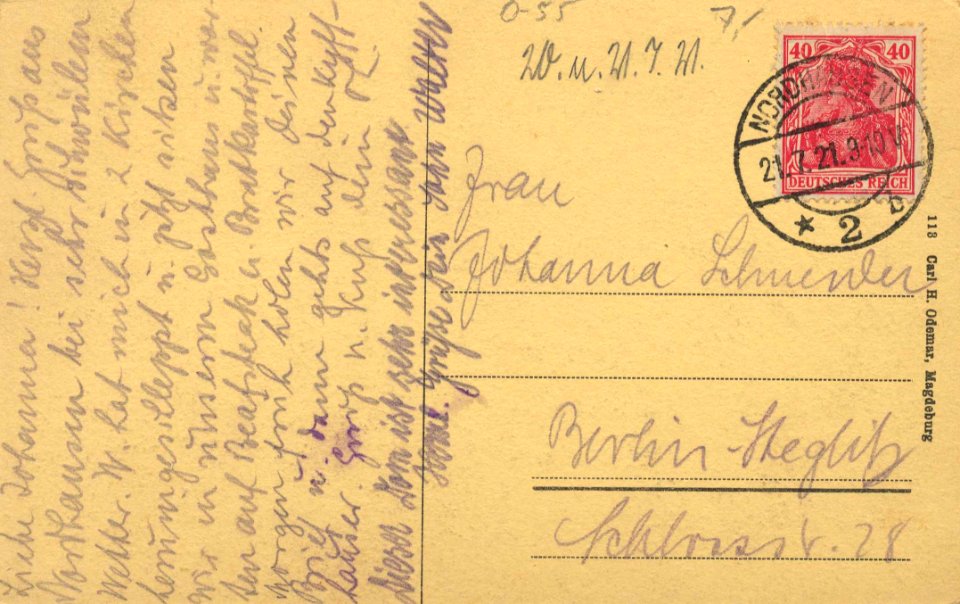 Liebe Johanna! Herzl Gruß aus
Nordhausen bei sehr schwülem
Wetter. W. hat mich in 2 Kirchen
herumgeschleppt u. jetzt sitzen
wir in unserm Gasthaus u. war-
ten auf Beafsteak u. Bratkartoffel.
Morgen früh holen wir Deinen
Brief u. dann gehts auf den Kyff-
häuser. Gruß u. Kuß dein
Dieser Dom ist sehr interessant
Herzl. Grüße
0-55
7,
20. u. 21. 7. 21.
40 40
DEUTSCHES REICH
NORDHAUSEN
21.7.21.9-10V
* 2 b
Frau
Johanna Schneider
Berlin-Steglitz
Schlossstr. 28
113 Carl H. Odemar, Magdeburg